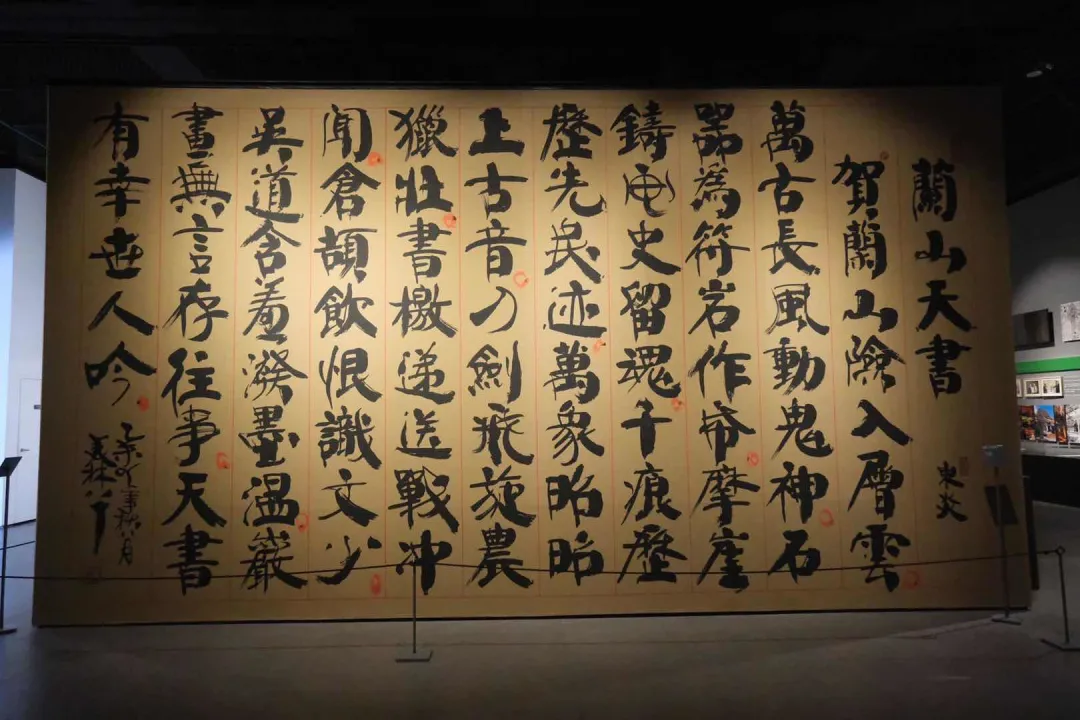 蘭山天書
賀蘭山險入層雲
萬古長風動鬼神石
器為符岩作帋摩崖
鑄史留魂千痕歷
歷先民迹萬象昭昭
上古音刀劍飛旋農
獵壯書檄递送戰冲
聞倉頡飲恨識文少
吳道含羞潑墨温巖
畫無言存往事天書
有幸世人吟